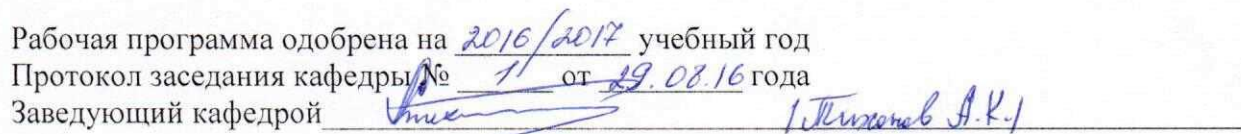 Рабочая программа одобрена на 2016/2017 учебный год
Протокол заседания кафедры № 1 от 29.08.16 года
Заведующий кафедрой /Тихонов А.К./